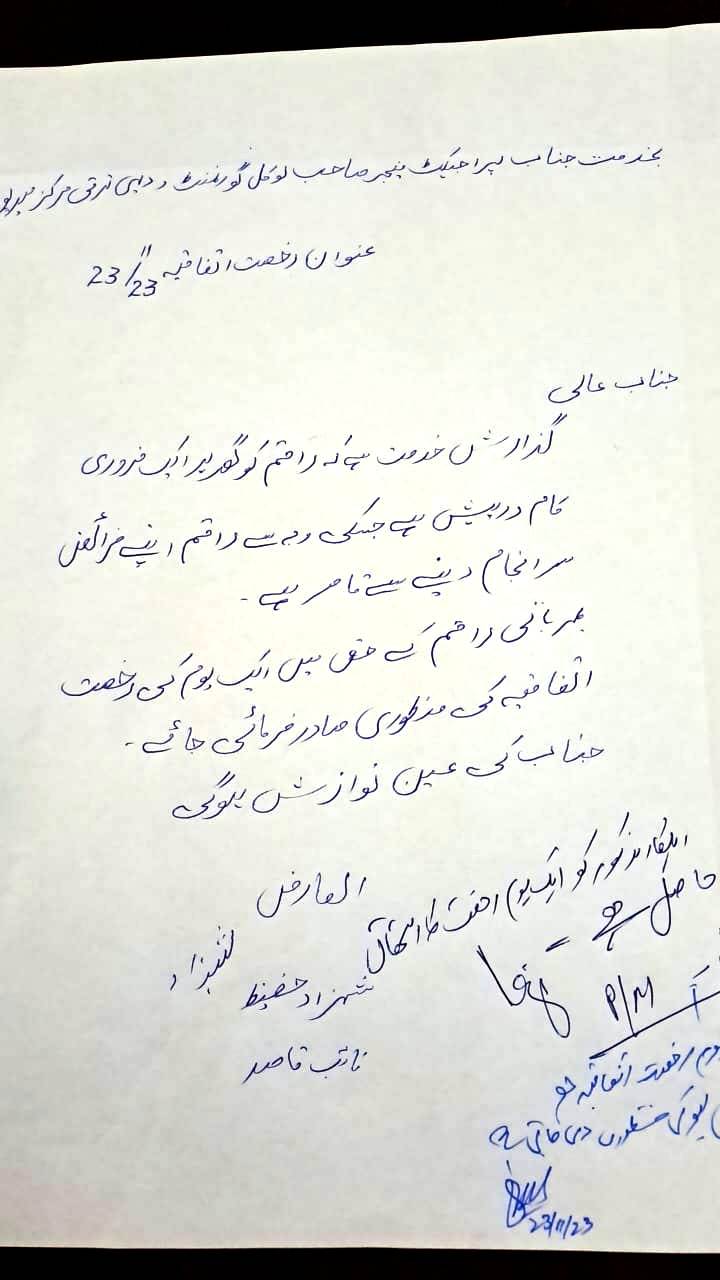 بخدمت جناب پراجیکٹ منیجر صاحب لوکل گورنمنٹ و دیہی ترقی مرکز
عنوان رخصت اتفاقیہ 23/11/23
جناب عالی
گذارش خدمت ہے کہ راقم کو گھر پر ایک ضروری
کام درپیش ہے جسکی وجہ سے راقم اپنے فرائض
سر انجام دینے سے قاصر ہے۔
مہربانی راقم کے حق میں ایک یوم کی رخصت
اتفاقیہ کی منظوری صادر فرمائی جائے۔
جناب کی عین نوازش ہوگی
العارض
شہزاد
شہزاد حفیظ
نائب قاصد
اہلکار مذکور کو ایک یوم رخصت کا استحقاق
حاصل ہے
P/M
رخصت اتفاقیہ
کی منظوری دی جاتی ہے
23/11/23